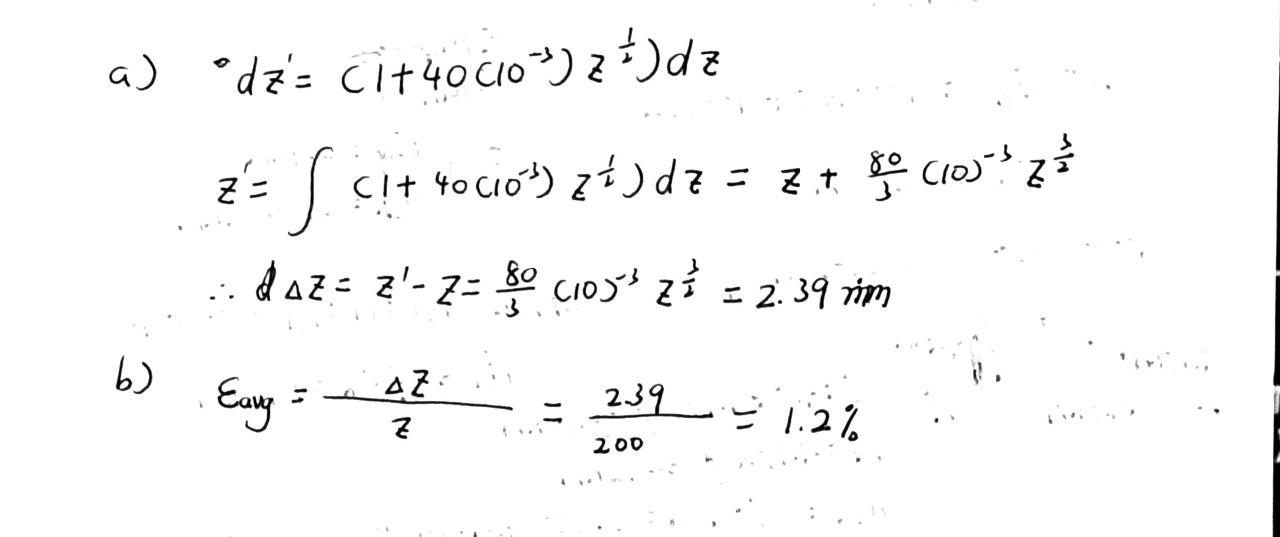 a) °dz' = (1+40(10⁻³) z^{1/2}) dz
z' = ∫ (1+ 40(10⁻³) z^{1/2}) dz = z + 80/3 (10)⁻³ z^{3/2}
∴ d ΔZ = z' - z = 80/3 (10)⁻³ z^{3/2} = 2.39 mm
b) εavg = ΔZ/z = 239/200 = 1.2%